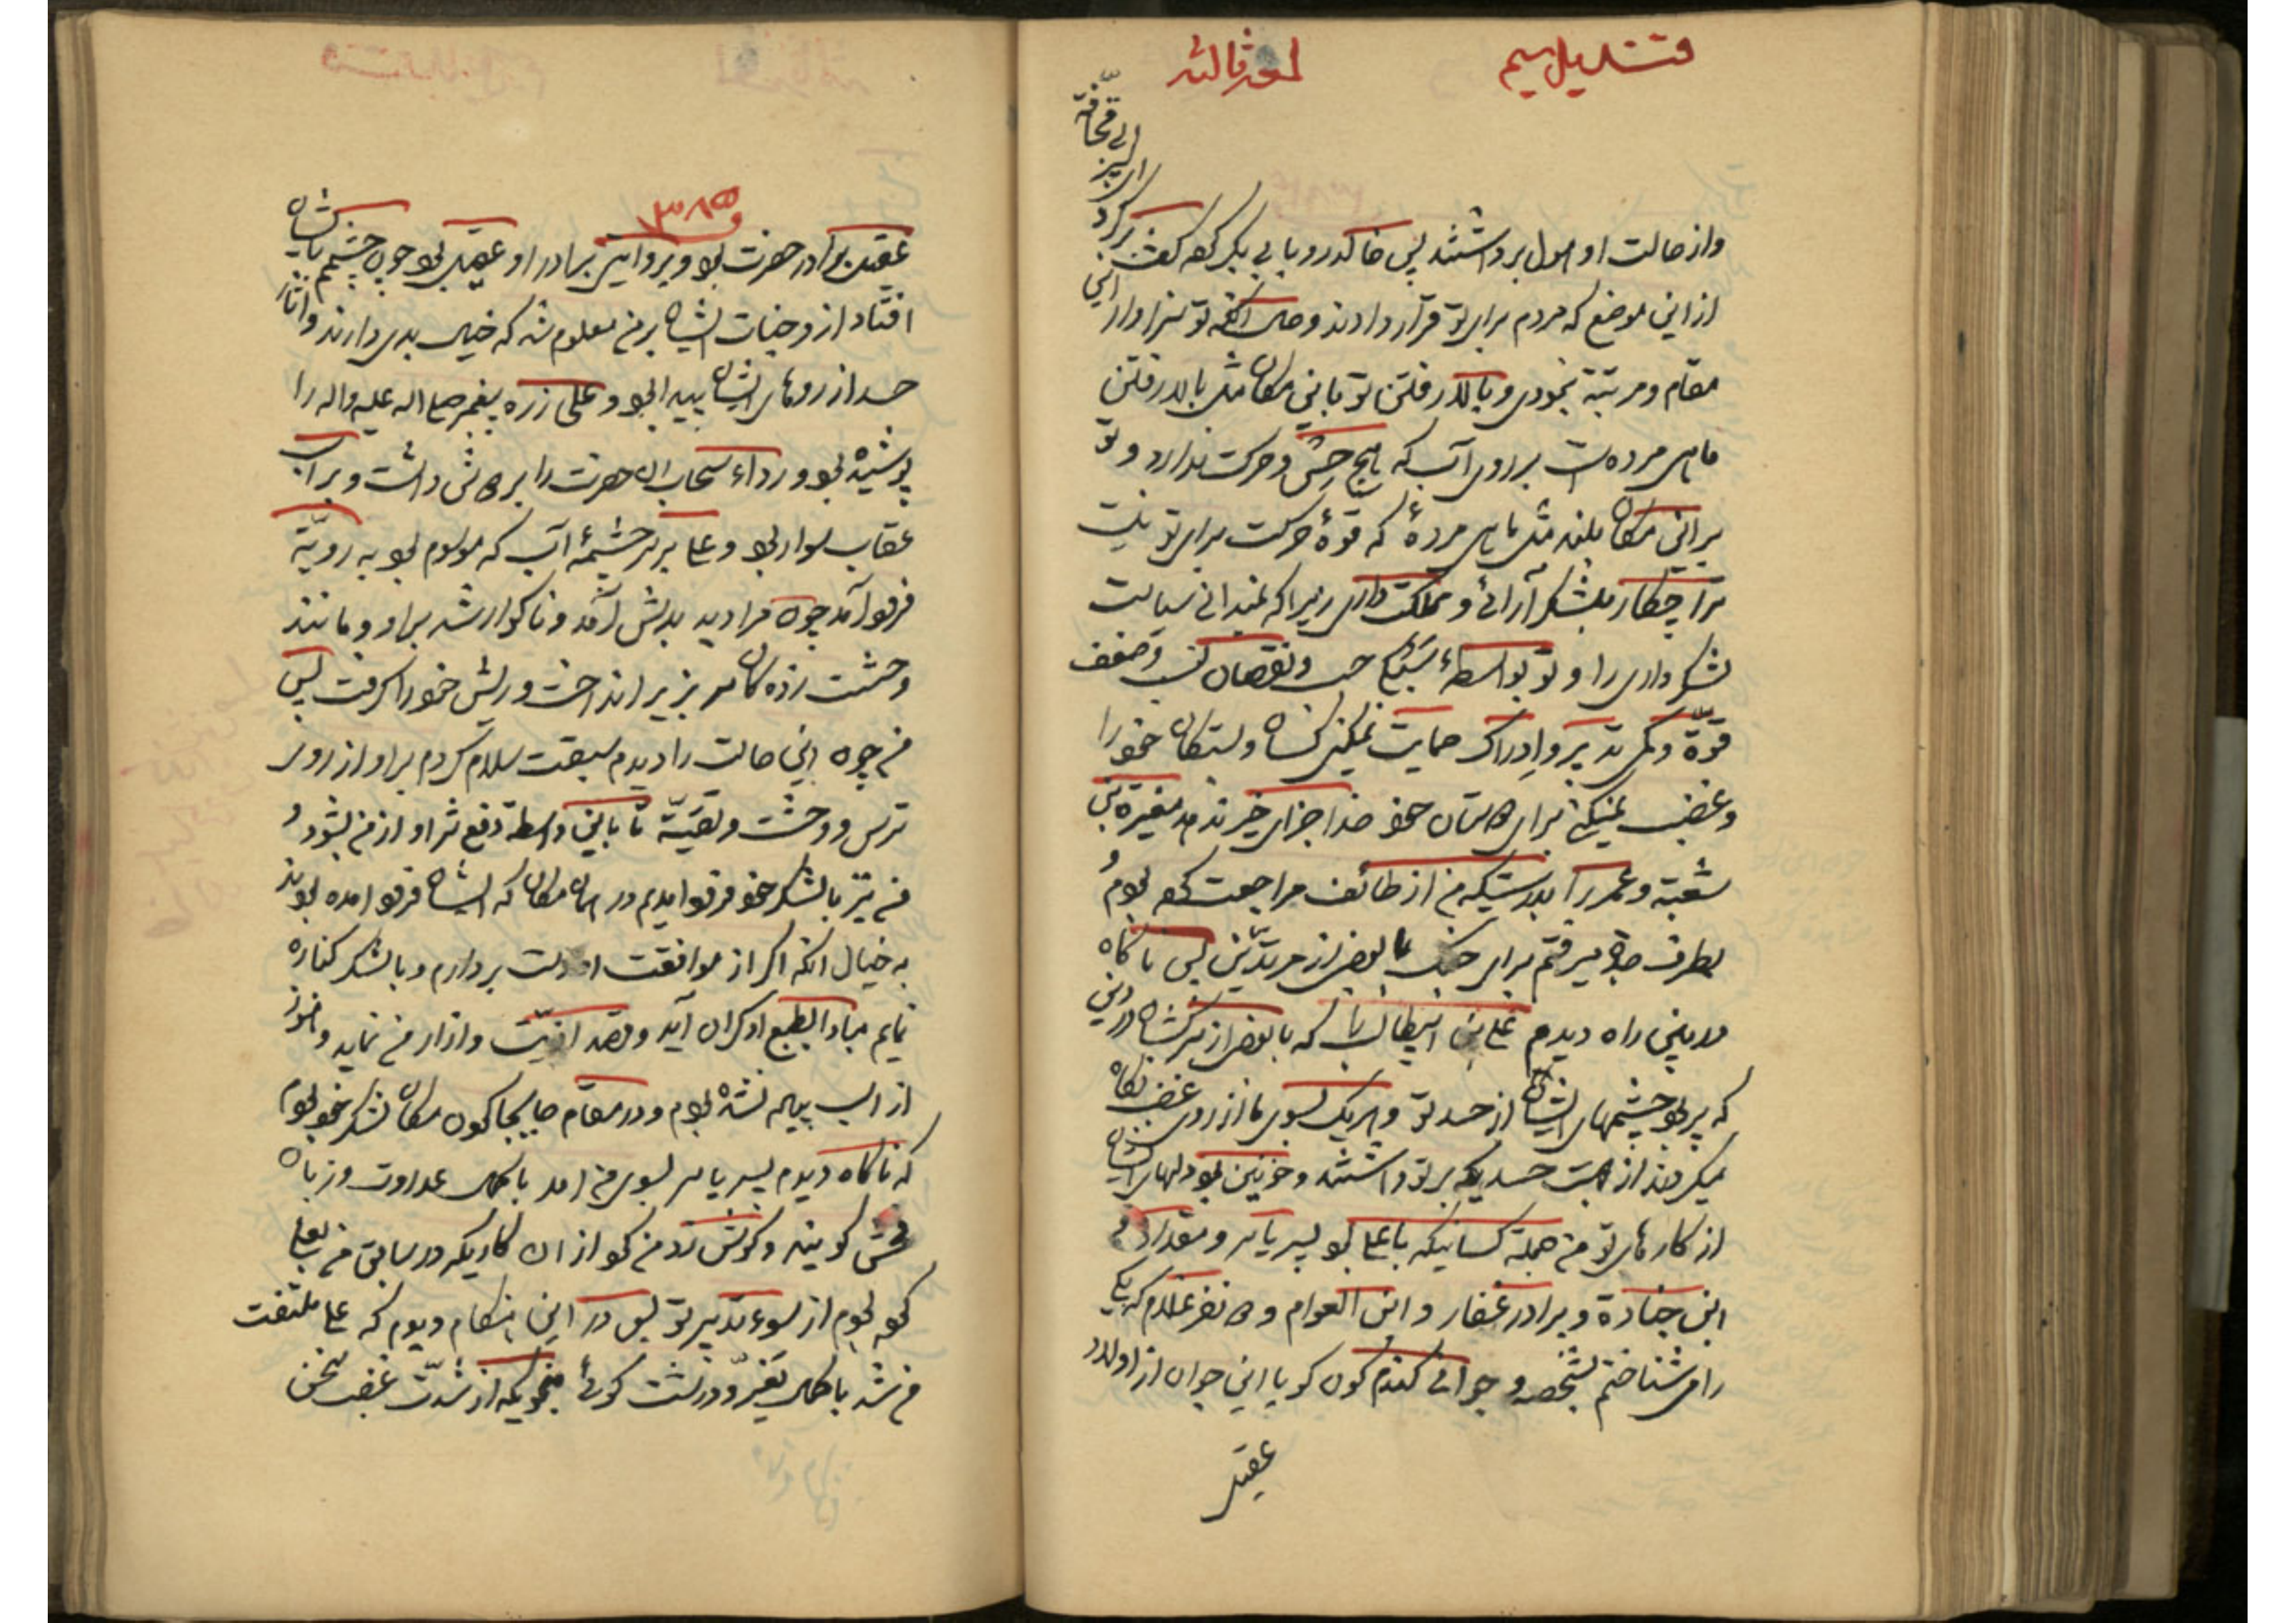 قندیل سیم
لمعه ثالثه
واز حالت او هول برداشتند پس خالد رو بابی بکر کرد گفت برکرد ای پسر ابی قحافة
از این موضع که مردم برای تو قرار دادند و حال آنکه تو سزاوار این
مقام و مرتبة نبودی و بالا رفتن تو باین مکان مثل بالا رفتن
ماهی مرده است بر روی آب که هیچ حس و حرکت ندارد و تو
بر این مکان بلند مثل ماهی مردهٔ که قوهٔ حرکت برای تو نیست
ترا چکار بلشکر آرائی و مملکت داری زیرا که نمیدانی سیاست
لشکر داری را و تو بواسطهٔ حسب و نقصان نسب و ضعف
قوّة و کمی تدبیر و ادراک حمایت نمیکنی کسان و بستکان خود را
و غضب نمیکنی برای دوستان خود خدا جزای خیر ندهد مغیرة بن
شعبة و عمر را بدرستیکه من از طائف مراجعت کرده بودم و
بطرف جدّه میرفتم برای جنک با بعضی از مرتدّین پس ناکاه
در بین راه دیدم علی بن ابیطالب را که با بعضی از سرکشان در دین
که پر بود چشمهای ایشان از حسد تو و هریک بسوی ما از روی غضب نکاه
میکردند از جهت حسدیکه بر تو داشتند و حزین بود دلهای ایشان
از کارهای تو من جملة کسانیکه با علی بود پسر یاسر و مقداد و
ابن جنادة و برادر غفار و ابن العوام و دو نفر غلام که یکی
را میشناختم بشخصه و جوانی کندم کون کویا این جوان از اولاد
عقیل
۳۸۵
عقیل برادر حضرت بود و بروایتی برادر او عقیل بود چون چشمم بایشان
افتاد از وجنات ایشان بر من معلوم شد که خیال بدی دارند و آثار
حسد از روهای ایشان پیدا بود و علی زره پیغمبر صلی اله علیه و اله را
پوشیده بود و رداء سحاب ان حضرت را بر دوش داشت و بر اسب
عقاب سوار بود و علی بر سر چشمهٔ آب که موسوم بود به رویّة
فرود آمد چون مرا دید بدش آمد و ناکوار شد بر او و مانند
وحشت زده کان سر بزیر انداخت و ریش خود را کرفت پس
من چون این حالت را دیدم سبقت سلام کردم بر او از روی
ترس و وحشت و تقیّة تا باین واسطة دفع شر او از من بشود و
من نیز با لشکر خود فرود امدیم در همان مکان که ایشان فرود امده بودند
به خیال انکه اکر از موافقت او دست بردارم و با لشکر کناره
نمایم مبادا بطبع او کران آید و قصد اذیّت و ازار من نماید و هنوز
از اسب پیاده نشده بودم و در مقام جابجا کردن مکان لشکر خود بودم
که ناکاه دیدم پسر یاسر بسوی من امد با کمال عداوت و زبان
فحش کویند و سرزنش زد من کو از ان کاریکه در سابق من بعلی
کرده بودم از سوء تدبیر تو پس در این هنکام دیدم که علی ملتفت
من شد با کمال تغیّر و درشت کوئی بنحویکه از شدّت غضب سخن